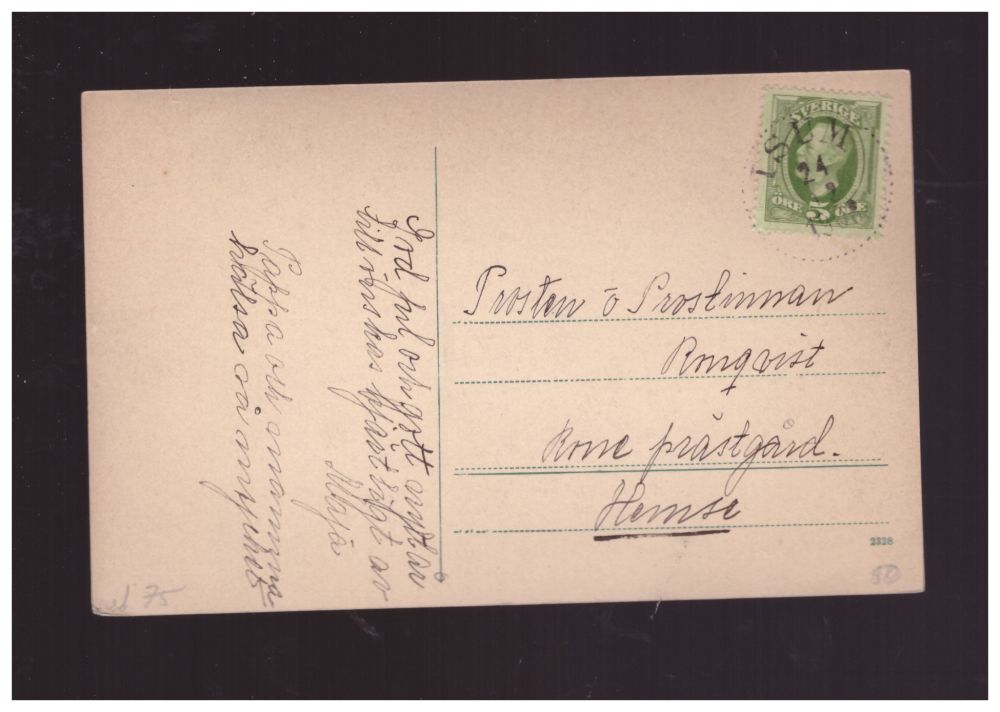 God jul och gott nytt år
tillönskas hjärtligt av
Maja
Pappa och mamma
hälsa så mycket
SVERIGE
ÖRE 5 ÖRE
ISUM
24
Prosten o Prostinnan
Ronqvist
Rone prästgård.
Hemse
2328
50
75